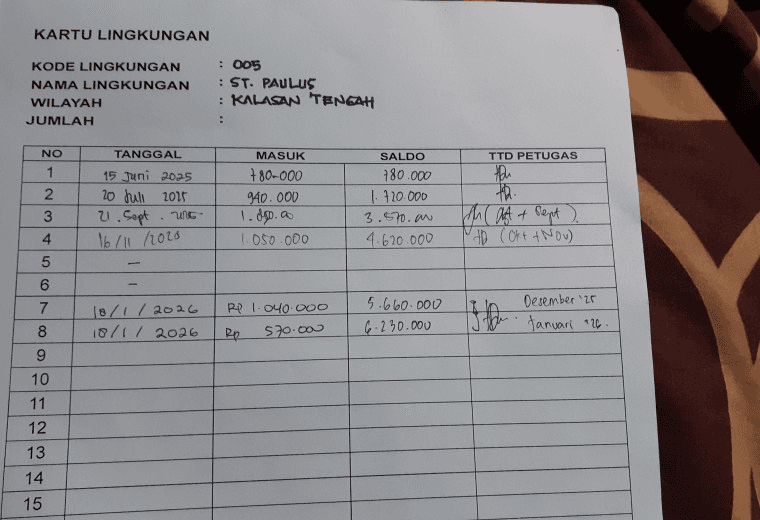 KARTU LINGKUNGAN
KODE LINGKUNGAN : 005
NAMA LINGKUNGAN : ST. PAULUS
WILAYAH : KALASAN TENGAH
JUMLAH :
NO TANGGAL MASUK SALDO TTD PETUGAS
1 15 Juni 2025 780-000 780.000
2 20 Juli 2025 940.000 1.720.000
3 21. Sept. 2025- 3.570.000 + Sept)
4 16/11/2025 1.050.000 4.620.000 (Okt + Nov)
5 -
6 -
7 18/1/2026 Rp 1.040.000 5.660.000 Desember '25
8 18/1/2026 Rp 570.000 6.230.000 Januari '26.
9
10
11
12
13
14
15